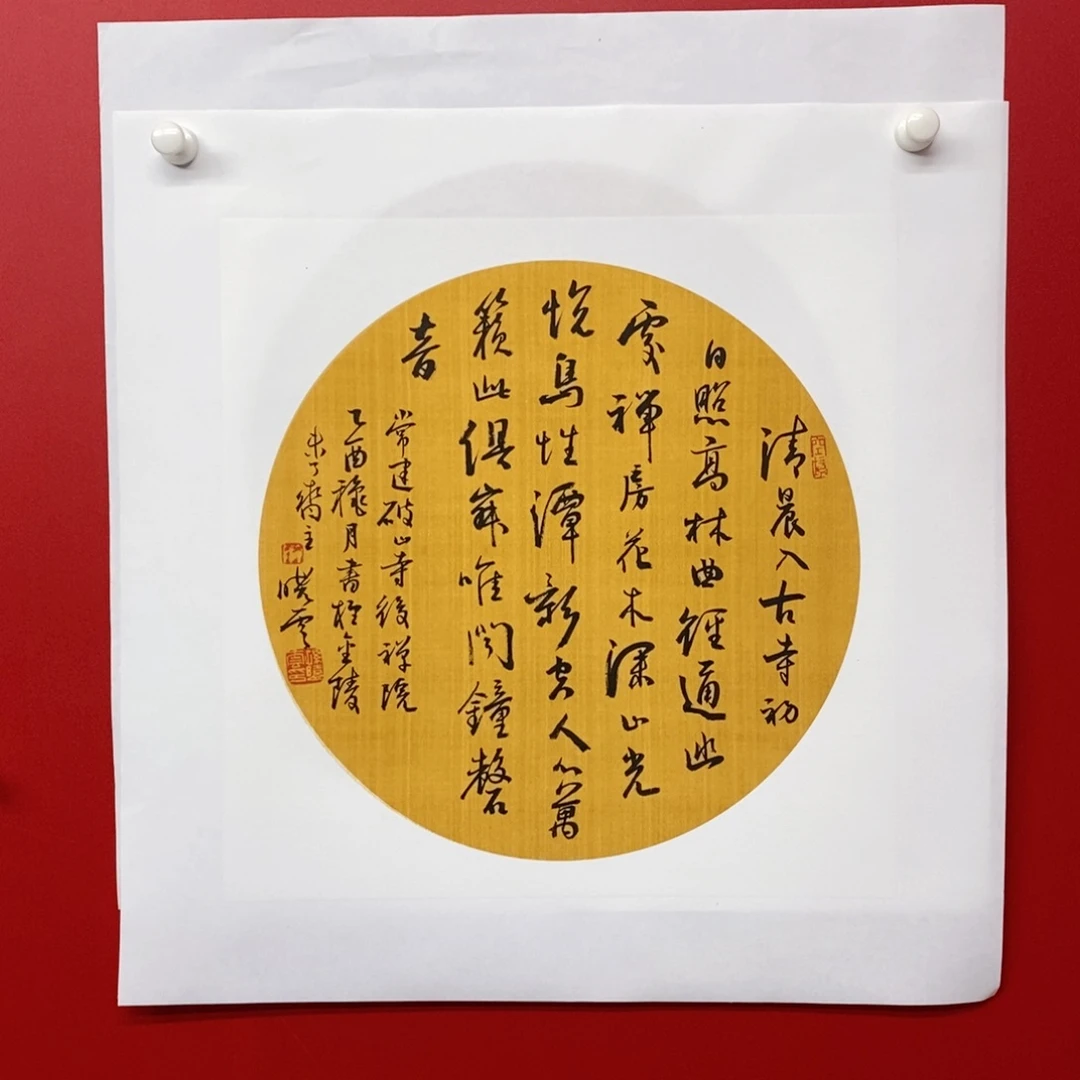 清晨入古寺初
日照高林曲徑通幽
處禪房花木深山光
悅鳥性潭影空人心萬
籟此俱寂唯聞鐘磬
音
常建破山寺後禪院
乙酉穐月書於金陵
未了齋主
曉雲